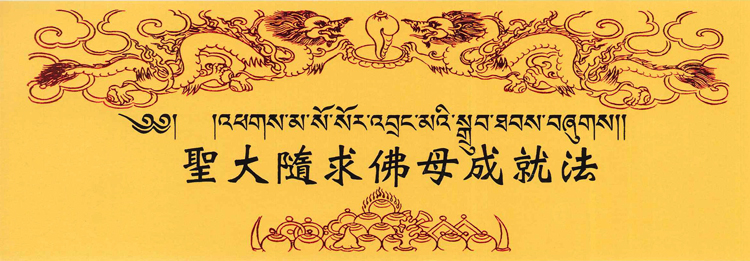 ༄༅། །འཕགས་མ་སོ་སོར་འབྲང་མའི་སྒྲུབ་ཐབས་བཞུགས།།
聖大隨求佛母成就法